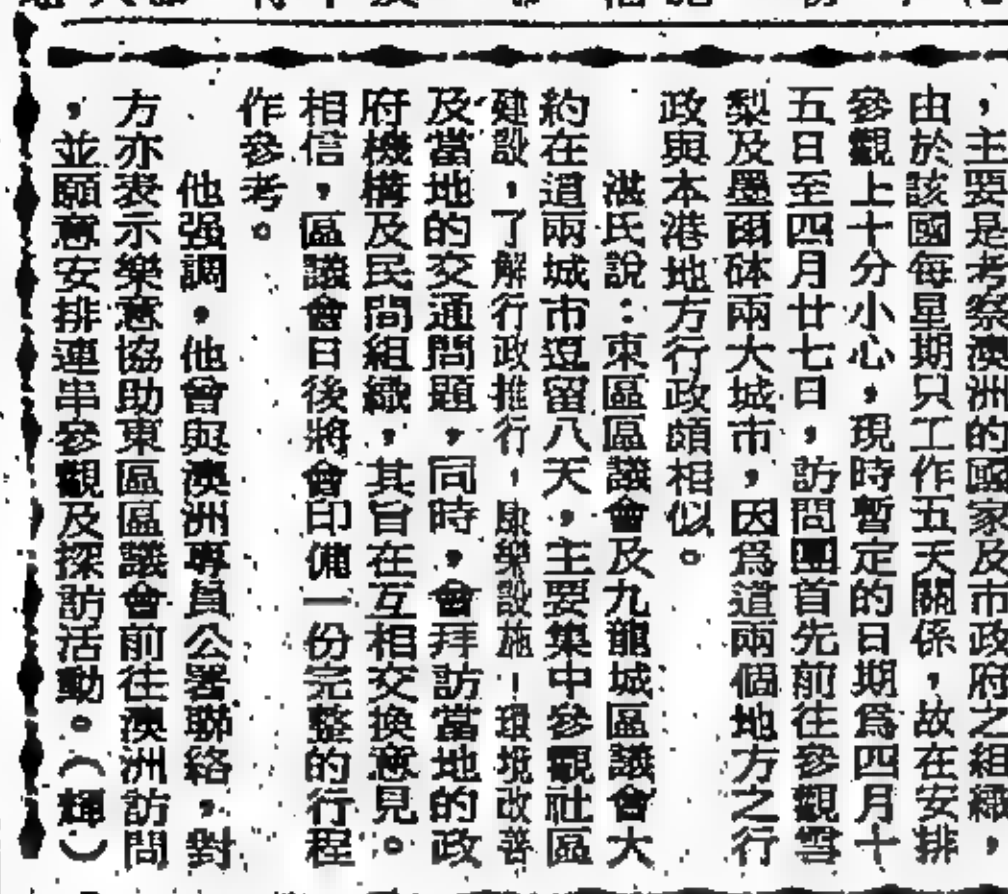 ，主要是考察澳洲的國家及市政府之組織，
由於該國每星期只工作五天關係，故在安排
參觀上十分小心，現時暫定的日期爲四月十
五日至四月廿七日，訪問團首先前往參觀雪
梨及墨爾砵兩大城市，因爲這兩個地方之行
政與本港地方行政頗相似。
湛氏說：東區區議會及九龍城區議會大
約在這兩城市逗留八天，主要集中參觀社區
建設，了解行政推行，康樂設施，環境改善
及當地的交通問題，同時，會拜訪當地的政
府機構及民間組織，其旨在互相交換意見。
相信，區議會日後將會印備一份完整的行程
作參考。
他强調，他曾與澳洲專員公署聯絡，對
方亦表示樂意協助東區區議會前往澳洲訪問
，並願意安排連串參觀及探訪活動。（輝）